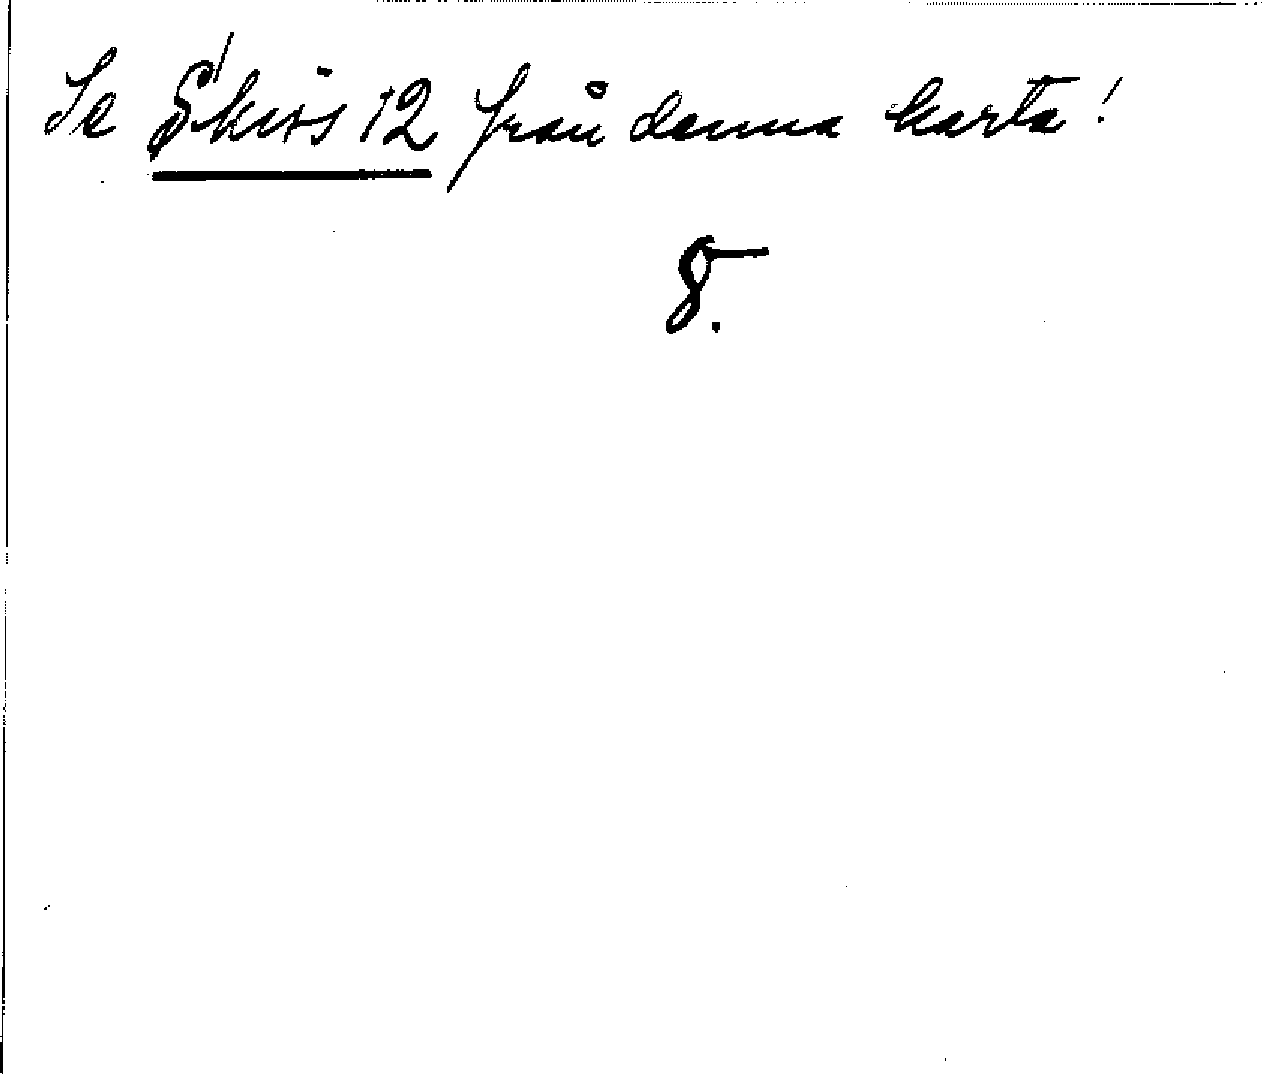 Se Skiss 12 från denna karta!
8.